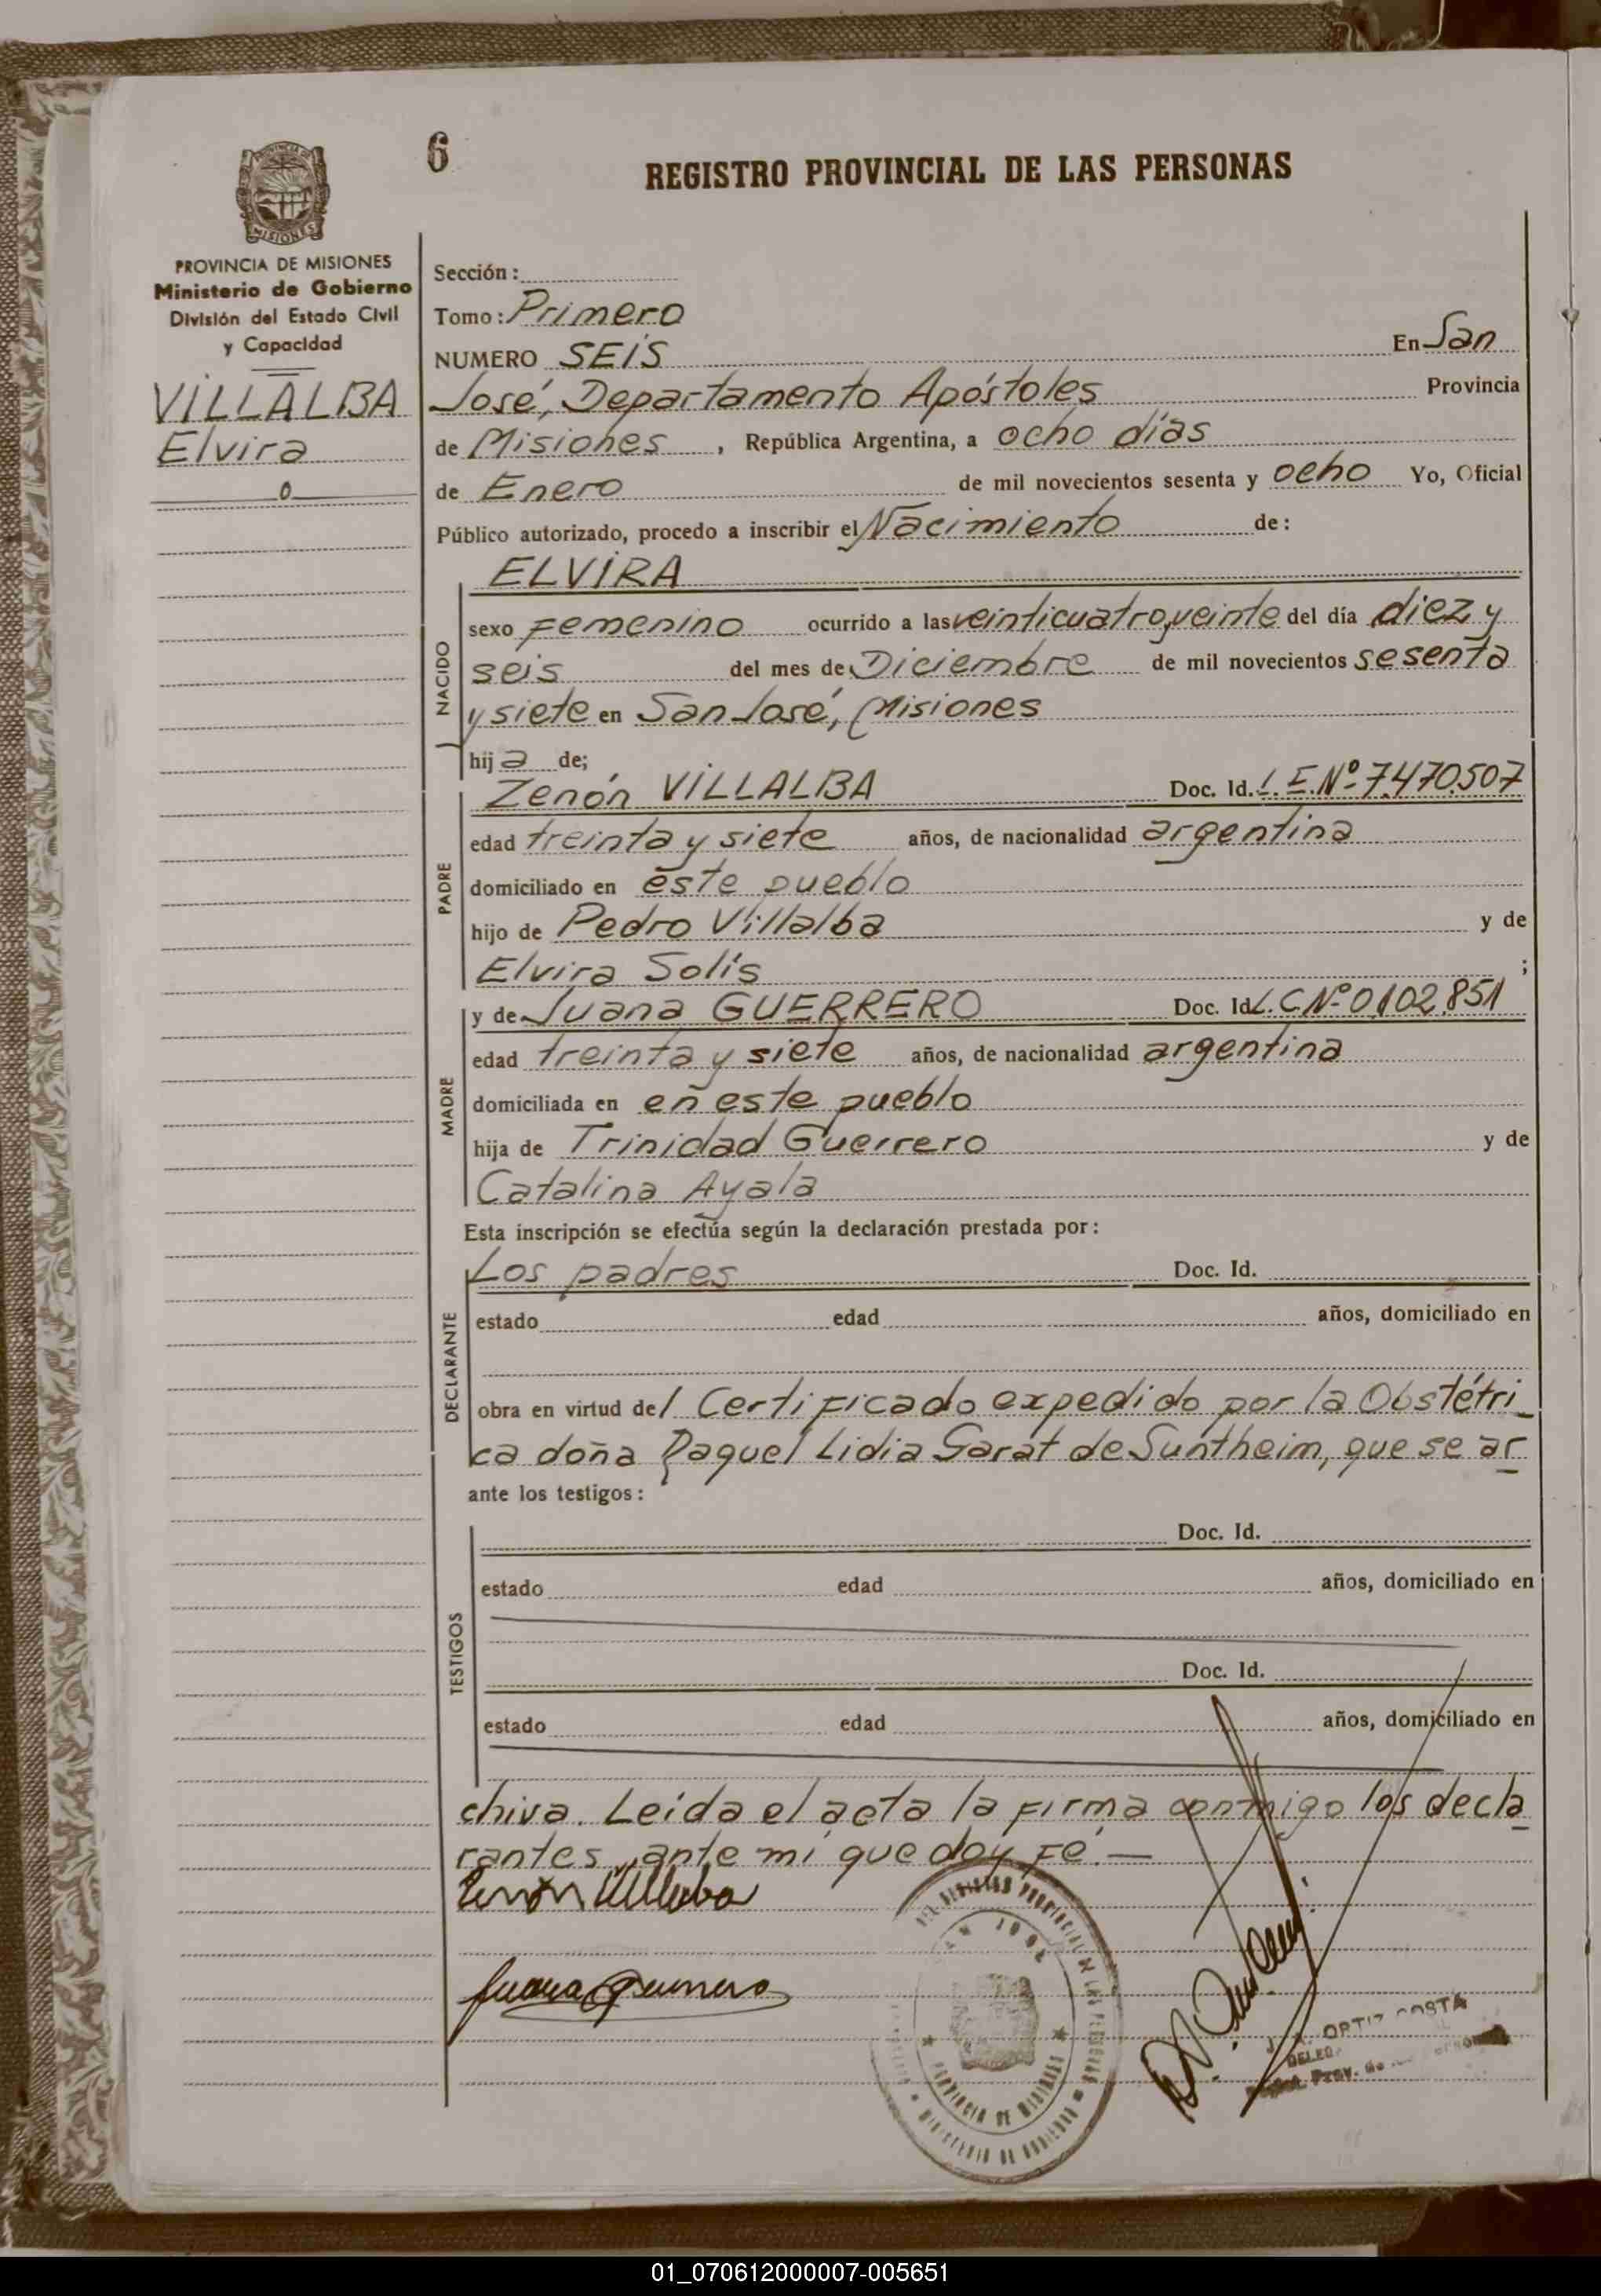 6
REGISTRO PROVINCIAL DE LAS PERSONAS
PROVINCIA DE MISIONES
Ministerio de Gobierno
División del Estado Civil
y Capacidad
VILLALBA
Elvira
Sección:
Tomo: Primero
NUMERO SEIS En San
José, Departamento Apóstoles Provincia
de Misiones, República Argentina, a ocho días
de Enero de mil novecientos sesenta y ocho Yo, Oficial
Público autorizado, procedo a inscribir el Nacimiento de:
NACIDO
ELVIRA
sexo Femenino ocurrido a las veinticuatro,veinte del día diez y
seis del mes de Diciembre de mil novecientos sesenta
y siete en San José, Misiones
hija de;
PADRE
Zenón VILLALBA Doc. Id. L.E.Nº 7.470.507
edad treinta y siete años, de nacionalidad argentina
domiciliado en este pueblo
hijo de Pedro Villalba y de
Elvira Solís ;
MADRE
y de Juana GUERRERO Doc. Id. L.C.Nº 0.102.851
edad treinta y siete años, de nacionalidad argentina
domiciliada en en este pueblo
hija de Trinidad Guerrero y de
Catalina Ayala
Esta inscripción se efectúa según la declaración prestada por:
DECLARANTE
Los padres Doc. Id.
estado edad años, domiciliado en
obra en virtud del Certificado expedido por la Obstétri
ca doña Raquel Lidia Sarat de Suntheim, que se ar
ante los testigos:
TESTIGOS
Doc. Id.
estado edad años, domiciliado en
Doc. Id.
estado edad años, domiciliado en
chiva. Leída el acta la firma conmigo los decla
rantes, ante mí que doy fé.—
Zenón Villalba
Juana Guerrero
SAN JOSE
PROVINCIA DE MISIONES
MINISTERIO DE GOBIERNO
ORTIZ COSTA
01_070612000007-005651